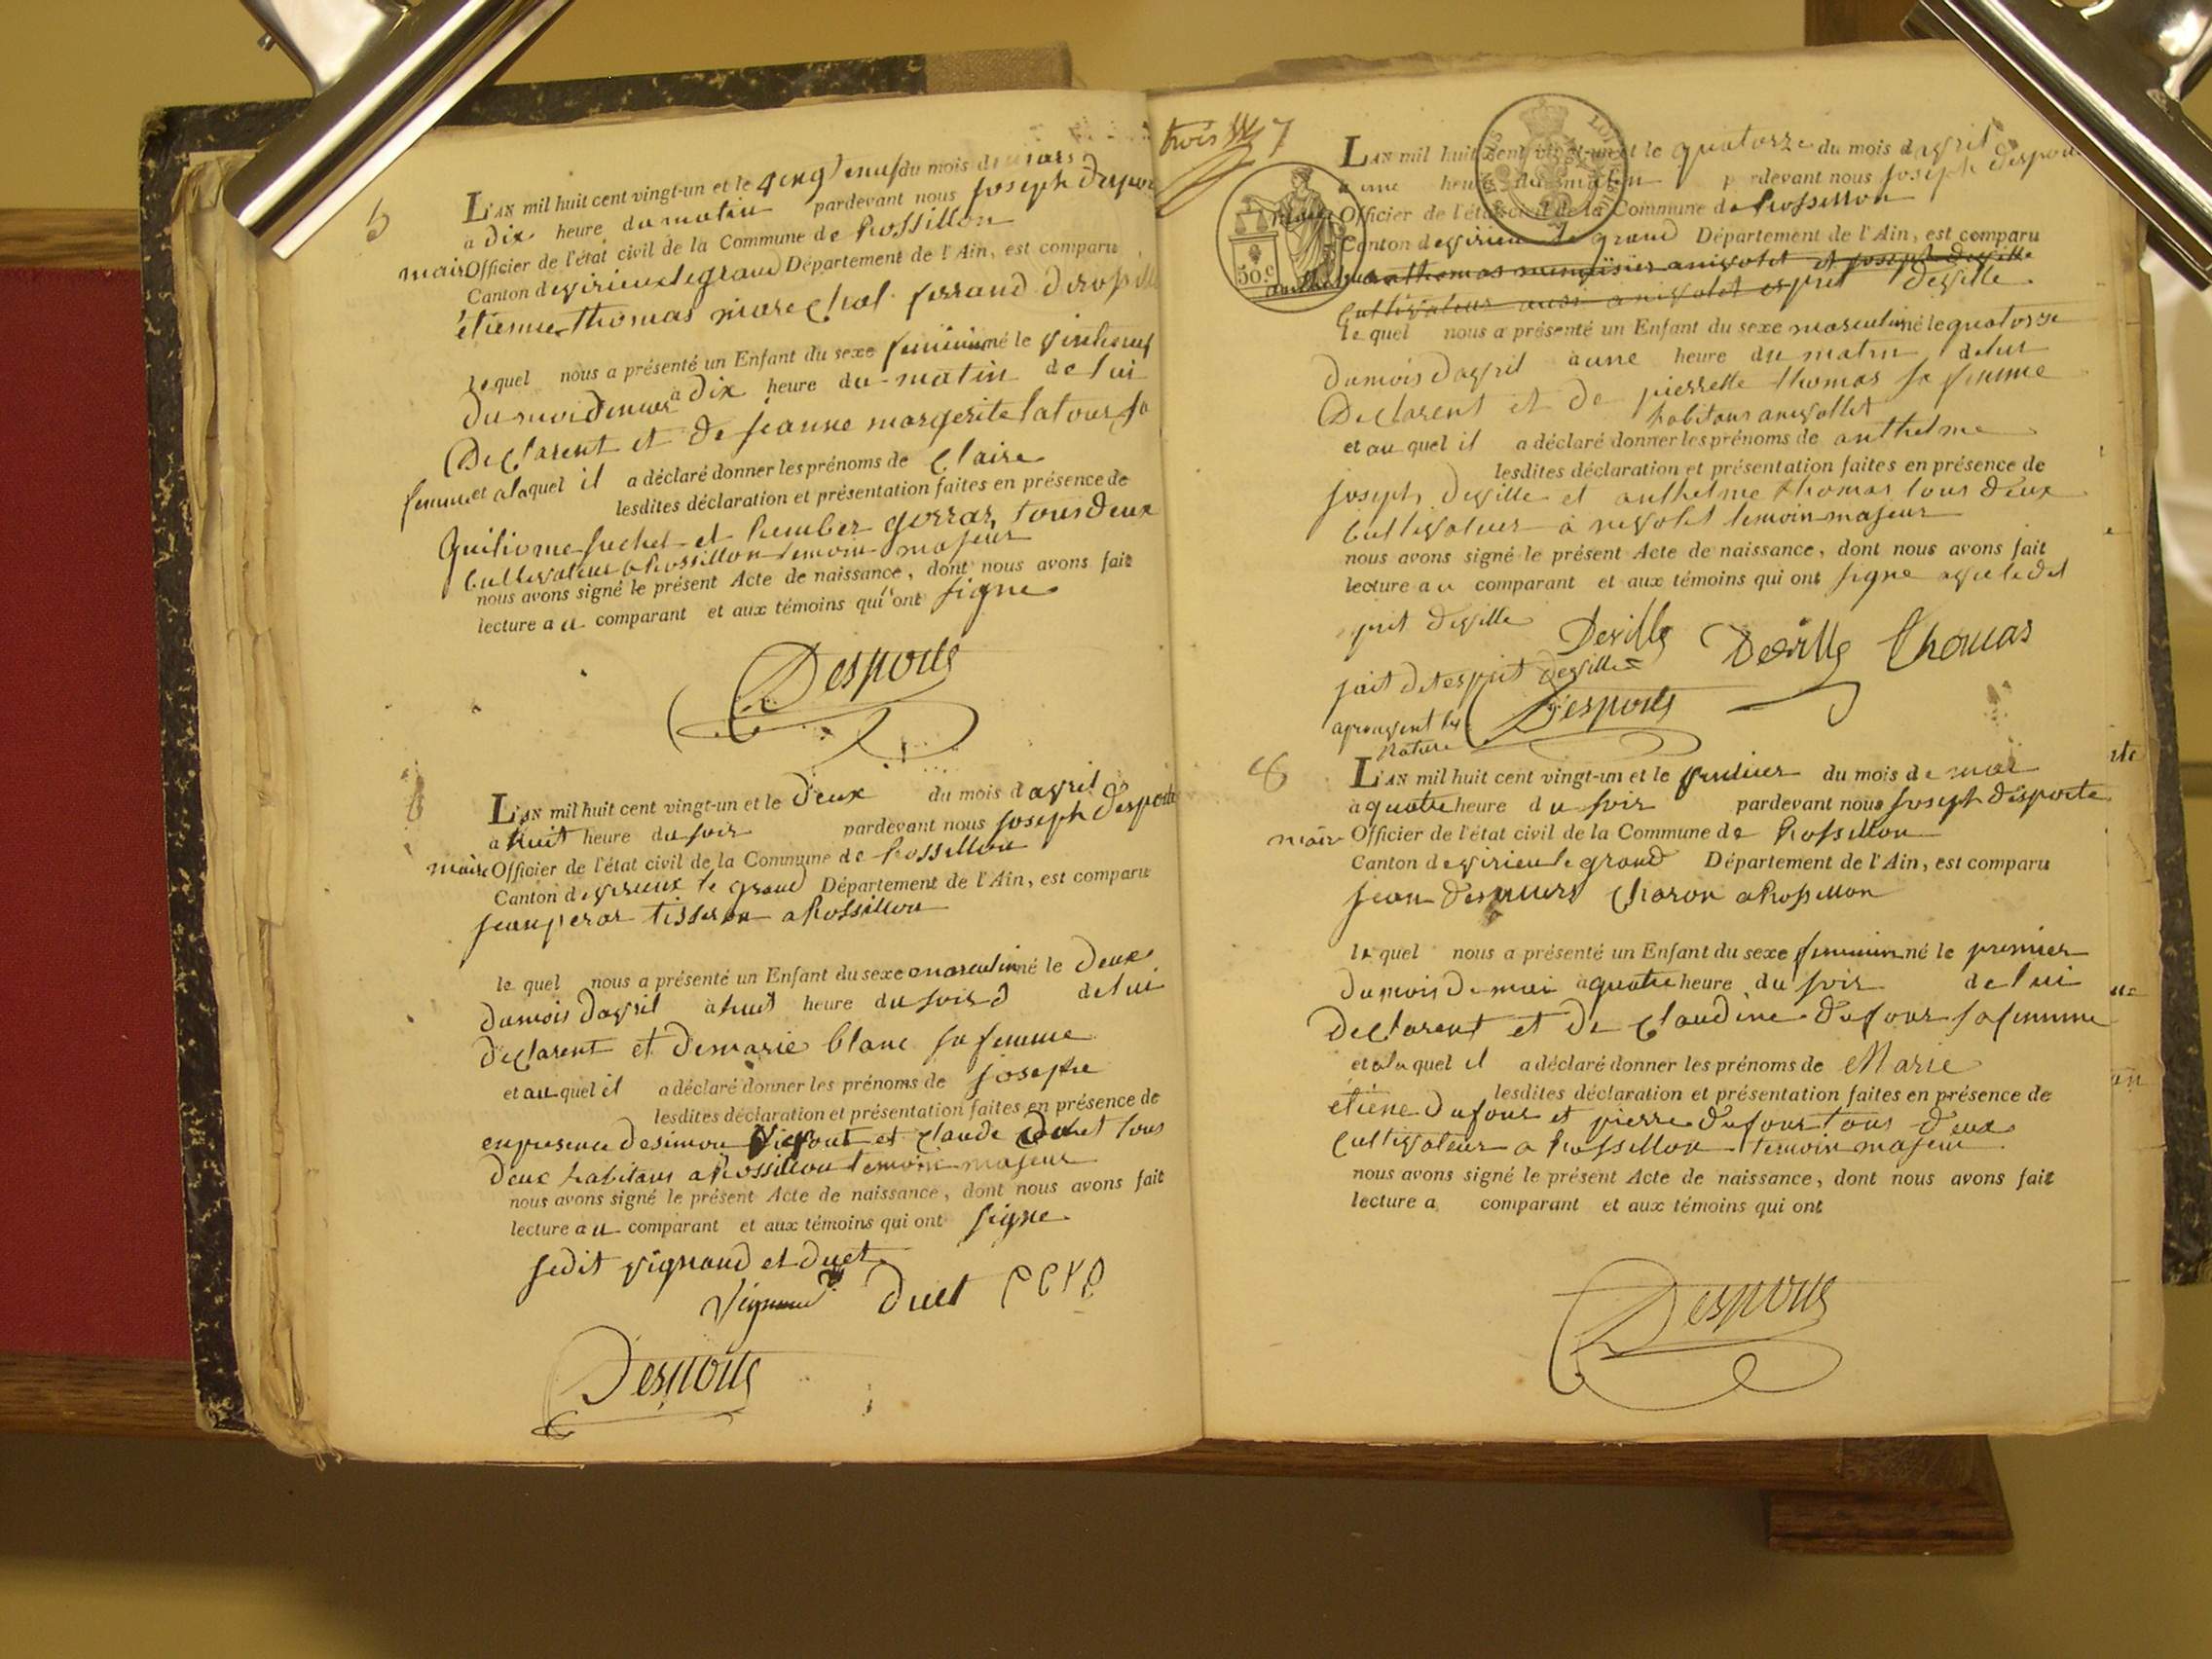 5
L'AN mil huit cent vingt-un et le vingt neuf du mois de mars
a dix heure du matin pardevant nous joseph desporte
maire Officier de l'état civil de la Commune de Rossillon
Canton de virieu le grand Département de l'Ain, est comparu
étienne thomas marechal ferrand
le quel nous a présenté un Enfant du sexe feminin né le
du mois de mars a dix heure du matin de lui
Declarent et de jeanne margerite latour sa
femme et a la quel il a déclaré donner les prénoms de Claire
lesdites déclaration et présentation faites en présence de
tous deux
Cultivateur a Rossillon temoin majeur
nous avons signé le présent Acte de naissance, dont nous avons fait
lecture a u comparant et aux témoins qui ont signe
Desporte
6
L'AN mil huit cent vingt-un et le deux du mois d avril
a huit heure du soir pardevant nous joseph desporte
maire Officier de l'état civil de la Commune de Rossillon
Canton de virieux le grand Département de l'Ain, est comparu
jean tisseran a Rossillon
le quel nous a présenté un Enfant du sexe masculin né le deux
du mois d'avril a huit heure du soir de lui
declarent et de marie blanc sa femme
et au quel il a déclaré donner les prénoms de joseph
lesdites déclaration et présentation faites en présence de
en presence de simon et claude tous
deux habitans a Rossillon temoin majeur
nous avons signé le présent Acte de naissance, dont nous avons fait
lecture a u comparant et aux témoins qui ont signe
se dit vignaud et duet
Duet
Desporte
trois 7
L'AN mil huit cent vingt-un et le quatorze du mois d avril
a une heure du matin pardevant nous joseph desporte
maire Officier de l'état civil de la Commune de Rossillon
50 c
Canton de virieu le grand Département de l'Ain, est comparu
thomas a nivolet et joseph deville
Cultivateur a nivolet esprit deville
le quel nous a présenté un Enfant du sexe masculin né le quatorze
du mois d'avril a une heure du matin de lui
Declarent et de pierrette thomas sa femme
habitans a nivollet
et au quel il a déclaré donner les prénoms de anthelme
lesdites déclaration et présentation faites en présence de
joseph deville et anthelme thomas tous deux
Cultivateur à nivolet temoin majeur
nous avons signé le présent Acte de naissance, dont nous avons fait
lecture a u comparant et aux témoins qui ont signe
deville
Deville Deville Thomas
esprit deville
Desporte
8
L'AN mil huit cent vingt-un et le premier du mois de mai
a quatre heure du soir pardevant nous joseph desporte
maire Officier de l'état civil de la Commune de Rossillon
Canton de virieu le grand Département de l'Ain, est comparu
jean Charon a Rossillon
le quel nous a présenté un Enfant du sexe feminin né le premier
du mois de mai a quatre heure du soir de lui
declarent et de Claudine dufour sa femme
et a la quel il a déclaré donner les prénoms de Marie
lesdites déclaration et présentation faites en présence de
étiène dufour et pierre dufour tous deux
Cultivateur a Rossillon temoin majeur
nous avons signé le présent Acte de naissance, dont nous avons fait
lecture a comparant et aux témoins qui ont
Desporte